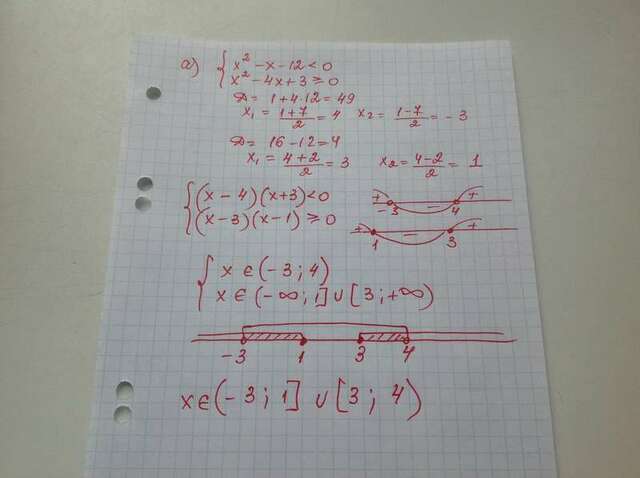 а) { x² - x - 12 < 0
x² - 4x + 3 ≥ 0
D = 1 + 4·12 = 49
x₁ = (1+7)/2 = 4 x₂ = (1-7)/2 = -3
D = 16 - 12 = 4
x₁ = (4+2)/2 = 3 x₂ = (4-2)/2 = 1
{ (x - 4)(x + 3) < 0
(x - 3)(x - 1) ≥ 0
+ -3 - 4 +
+ 1 - 3 +
{ x ∈ (-3; 4)
x ∈ (-∞; 1] ∪ [3; +∞)
-3 1 3 4
x ∈ (-3; 1] ∪ [3; 4)